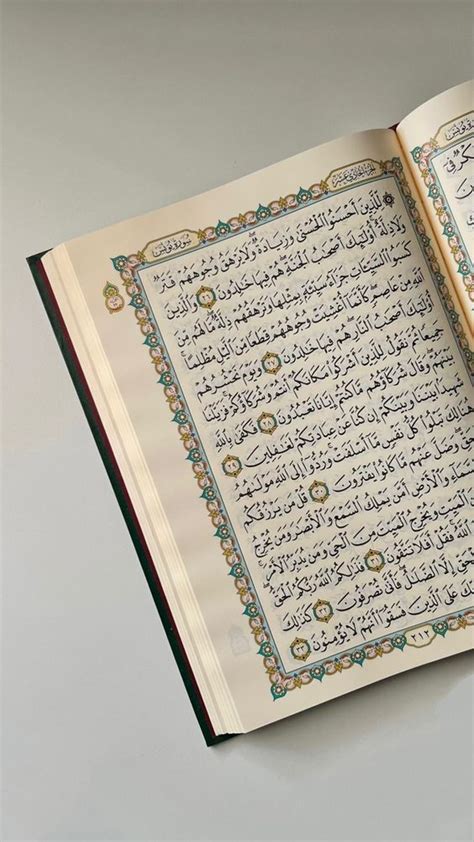 الجزء الحادي عشر
سورة يونس
۞ لِّلَّذِينَ أَحْسَنُوا۟ ٱلْحُسْنَىٰ وَزِيَادَةٌ ۖ وَلَا يَرْهَقُ وُجُوهَهُمْ قَتَرٌ
وَلَا ذِلَّةٌ ۚ أُو۟لَٰٓئِكَ أَصْحَٰبُ ٱلْجَنَّةِ ۖ هُمْ فِيهَا خَٰلِدُونَ ٢٦ وَٱلَّذِينَ
كَسَبُوا۟ ٱلسَّيِّـَٔاتِ جَزَآءُ سَيِّئَةٍۭ بِمِثْلِهَا وَتَرْهَقُهُمْ ذِلَّةٌ ۖ مَّا لَهُم مِّنَ
ٱللَّهِ مِنْ عَاصِمٍ ۖ كَأَنَّمَآ أُغْشِيَتْ وُجُوهُهُمْ قِطَعًا مِّنَ ٱلَّيْلِ مُظْلِمًا ۚ
أُو۟لَٰٓئِكَ أَصْحَٰبُ ٱلنَّارِ ۖ هُمْ فِيهَا خَٰلِدُونَ ٢٧ وَيَوْمَ نَحْشُرُهُمْ
جَمِيعًا ثُمَّ نَقُولُ لِلَّذِينَ أَشْرَكُوا۟ مَكَانَكُمْ أَنتُمْ وَشُرَكَآؤُكُمْ ۚ فَزَيَّلْنَا
بَيْنَهُمْ ۖ وَقَالَ شُرَكَآؤُهُم مَّا كُنتُمْ إِيَّانَا تَعْبُدُونَ ٢٨ فَكَفَىٰ بِٱللَّهِ
شَهِيدًۢا بَيْنَنَا وَبَيْنَكُمْ إِن كُنَّا عَنْ عِبَادَتِكُمْ لَغَٰفِلِينَ ٢٩
هُنَالِكَ تَبْلُوا۟ كُلُّ نَفْسٍ مَّآ أَسْلَفَتْ ۚ وَرُدُّوٓا۟ إِلَى ٱللَّهِ مَوْلَىٰهُمُ
وَضَلَّ عَنْهُم مَّا كَانُوا۟ يَفْتَرُونَ ٣٠ قُلْ مَن يَرْزُقُكُم
وَٱلْأَرْضِ أَمَّن يَمْلِكُ ٱلسَّمْعَ وَٱلْأَبْصَٰرَ وَمَن يُخْرِجُ
ٱلْمَيِّتِ وَيُخْرِجُ ٱلْمَيِّتَ مِنَ ٱلْحَىِّ وَمَن يُدَبِّرُ ٱلْأَمْرَ ۚ
ٱللَّهُ ۚ فَقُلْ أَفَلَا تَتَّقُونَ ٣١ فَذَٰلِكُمُ ٱللَّهُ رَبُّكُمُ ٱلْحَقُّ ۖ
إِلَّا ٱلضَّلَٰلُ ۖ فَأَنَّىٰ تُصْرَفُونَ ٣٢ كَذَٰلِكَ
عَلَى ٱلَّذِينَ فَسَقُوٓا۟ أَنَّهُمْ لَا يُؤْمِنُونَ ٣٣
٢١٢